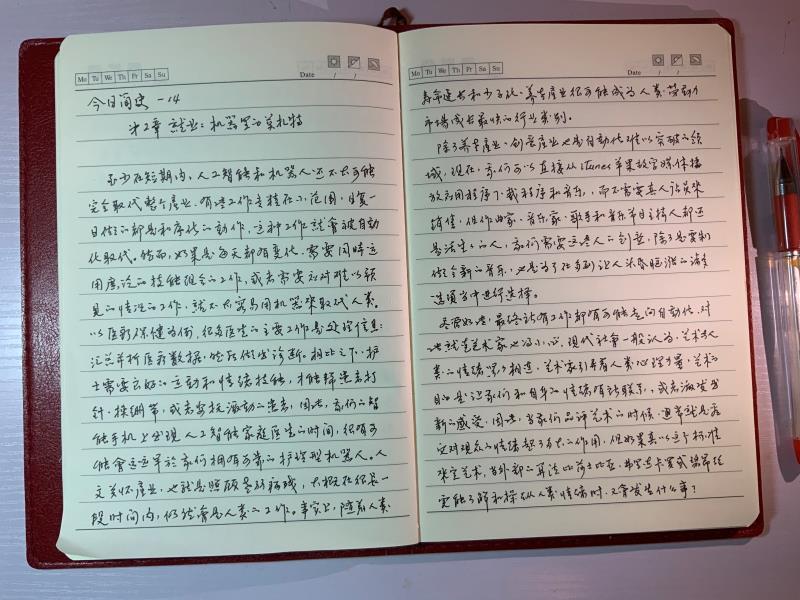 Mo Tu We Th Fr Sa Su
Date / /
今日简史 —14
第2章 就业：机器里的莫札特
至少在短期内，人工智能和机器人还不太可能
完全取代整个产业。有些工作专精在小范围，日复一
日做的都是程序化的动作，这种工作就会被自动
化取代。然而，如果是每天都有变化、需要同时运
用广泛的技能组合的工作，或者需要应对难以预
见的情况的工作，就不太容易用机器来取代人类。
以医疗保健为例，很多医生的主要工作是处理信息：
汇总并析医疗数据，然后做出诊断。相比之下，护
士需要良好的运动和情绪技能，才能替患者打
针、换绷带，或者安抚激动的患者。因此，我们的智
能手机上出现人工智能家庭医生的时间，很有可
能会远远早于我们拥有可靠的护理型机器人。人
文关怀产业，也就是照顾老弱病残，大概在很长一
段时间内，仍然会是人类的工作。事实上，随着人类
Mo Tu We Th Fr Sa Su
Date / /
寿命延长和少子化，养老产业很可能成为人类劳动力
市场成长最快的行业类别。
除了养老产业，创意产业也是自动化难以突破的领
域。现在，我们可以直接从iTunes苹果数字媒体播
放应用程序下载程序和音乐，而不需要真人店员来
销售，但作曲家、音乐家、歌手和音乐节目主持人都还
是活生生的人，我们需要这些人的创意，除了是要制
做全新的音乐，也是为了在多到让人头昏眼涨的诸多
选项当中进行选择。
尽管如此，最终所有工作都有可能走向自动化，对
此就连艺术家也得小心。现代社会一般认为，艺术与人
类的情绪密切相连，艺术家引导着人类心理力量，艺术的
目的是让我们和自身的情绪有所联系，或者激发出
新的感受。因此，当我们品评艺术的时候，通常就是看
它对观众的情绪起了多大的作用，但如果真以这个标准
来定艺术，当外部的算法比莎士比亚、弗里达·卡罗或碧昂丝
更能了解和操纵人类情绪时，又会发生什么事？